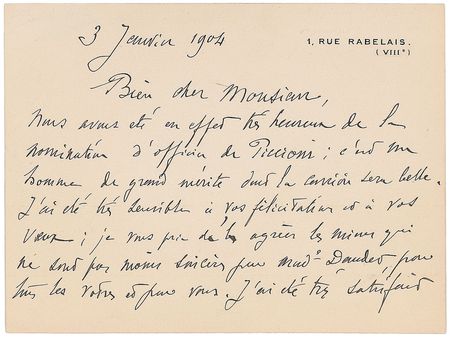 3 Janvier 1904
1, RUE RABELAIS.
(VIIIe)
Bien cher Monsieur,
Nous avons été en effet très heureux de la
nomination d'officier de Piccioni ; c'est un
homme de grand mérite dont la carrière sera belle.
J'ai été très sensible à vos félicitations et à vos
vœux ; je vous prie de agréer les miens qui
ne sont pas moins sincères pour Made Daudet, pour
tous les votres et pour vous. J'ai été très satisfait